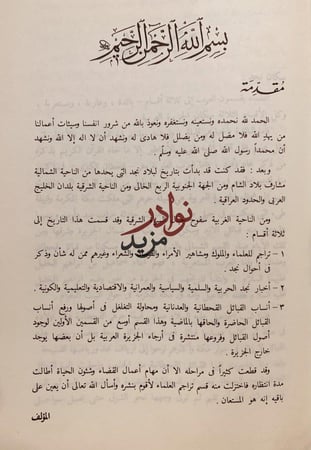 بسم الله الرحمن الرحيم
مُقدِّمَة
الحمد لله نحمده ونستعينه ونستغفره ونعوذ بالله من شرور انفسنا وسيئات أعمالنا
من يهد الله فلا مضل له ومن يضلل فلا هادى له ونشهد أن لا اله إلا الله ونشهد
أن محمداً رسول الله صلى الله عليه وسلم .
وبعد : فقد كنت قد بدأت بتاريخ لبلاد نجد التى يحدها من الناحية الشمالية
مشارف بلاد الشام ومن الجهة الجنوبية الربع الخالى ومن الناحية الشرقية بلدان الخليج
العربى والحدود العراقية .
ومن الناحية الغربية سفوح الشرقية وقد قسمت هذا التاريخ إلى
ثلاثة أقسام :
نوادر
مزيد
١ - تراجم للعلماء والملوك ومشاهير الأمراء والشعراء وغيرهم ممن له شأن وذكر
فى أحوال نجد .
٢ - أخبار نجد الحربية والسلمية والسياسية والعمرانية والاقتصادية والتعليمية والكونية .
٣ - أنساب القبائل القحطانية والعدنانية ومحاولة التغلغل فى أصولها ورفع أنساب
القبائل الحاضرة والحاقها بالماضية وهذا القسم أوسع من القسمين الأولين لوجود
أصول القبائل وفروعها منتشرة فى أرجاء الجزيرة العربية بل أن بعضها يوجد
خارج الجزيرة .
وقد قطعت كثيراً فى مراحله الا أن مهام أعمال القضاء وشئون الحياة أطالت
مدة انتظاره فاختزلت منه قسم تراجم العلماء لأقوم بنشره وأسأل الله تعالى أن يعين على
باقيه إنه هو المستعان .
المؤلف